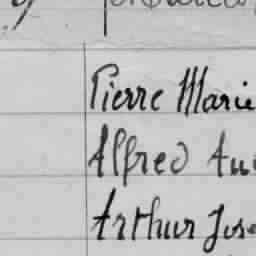 Pierre Marie
Alfred Au
Arthur Jose